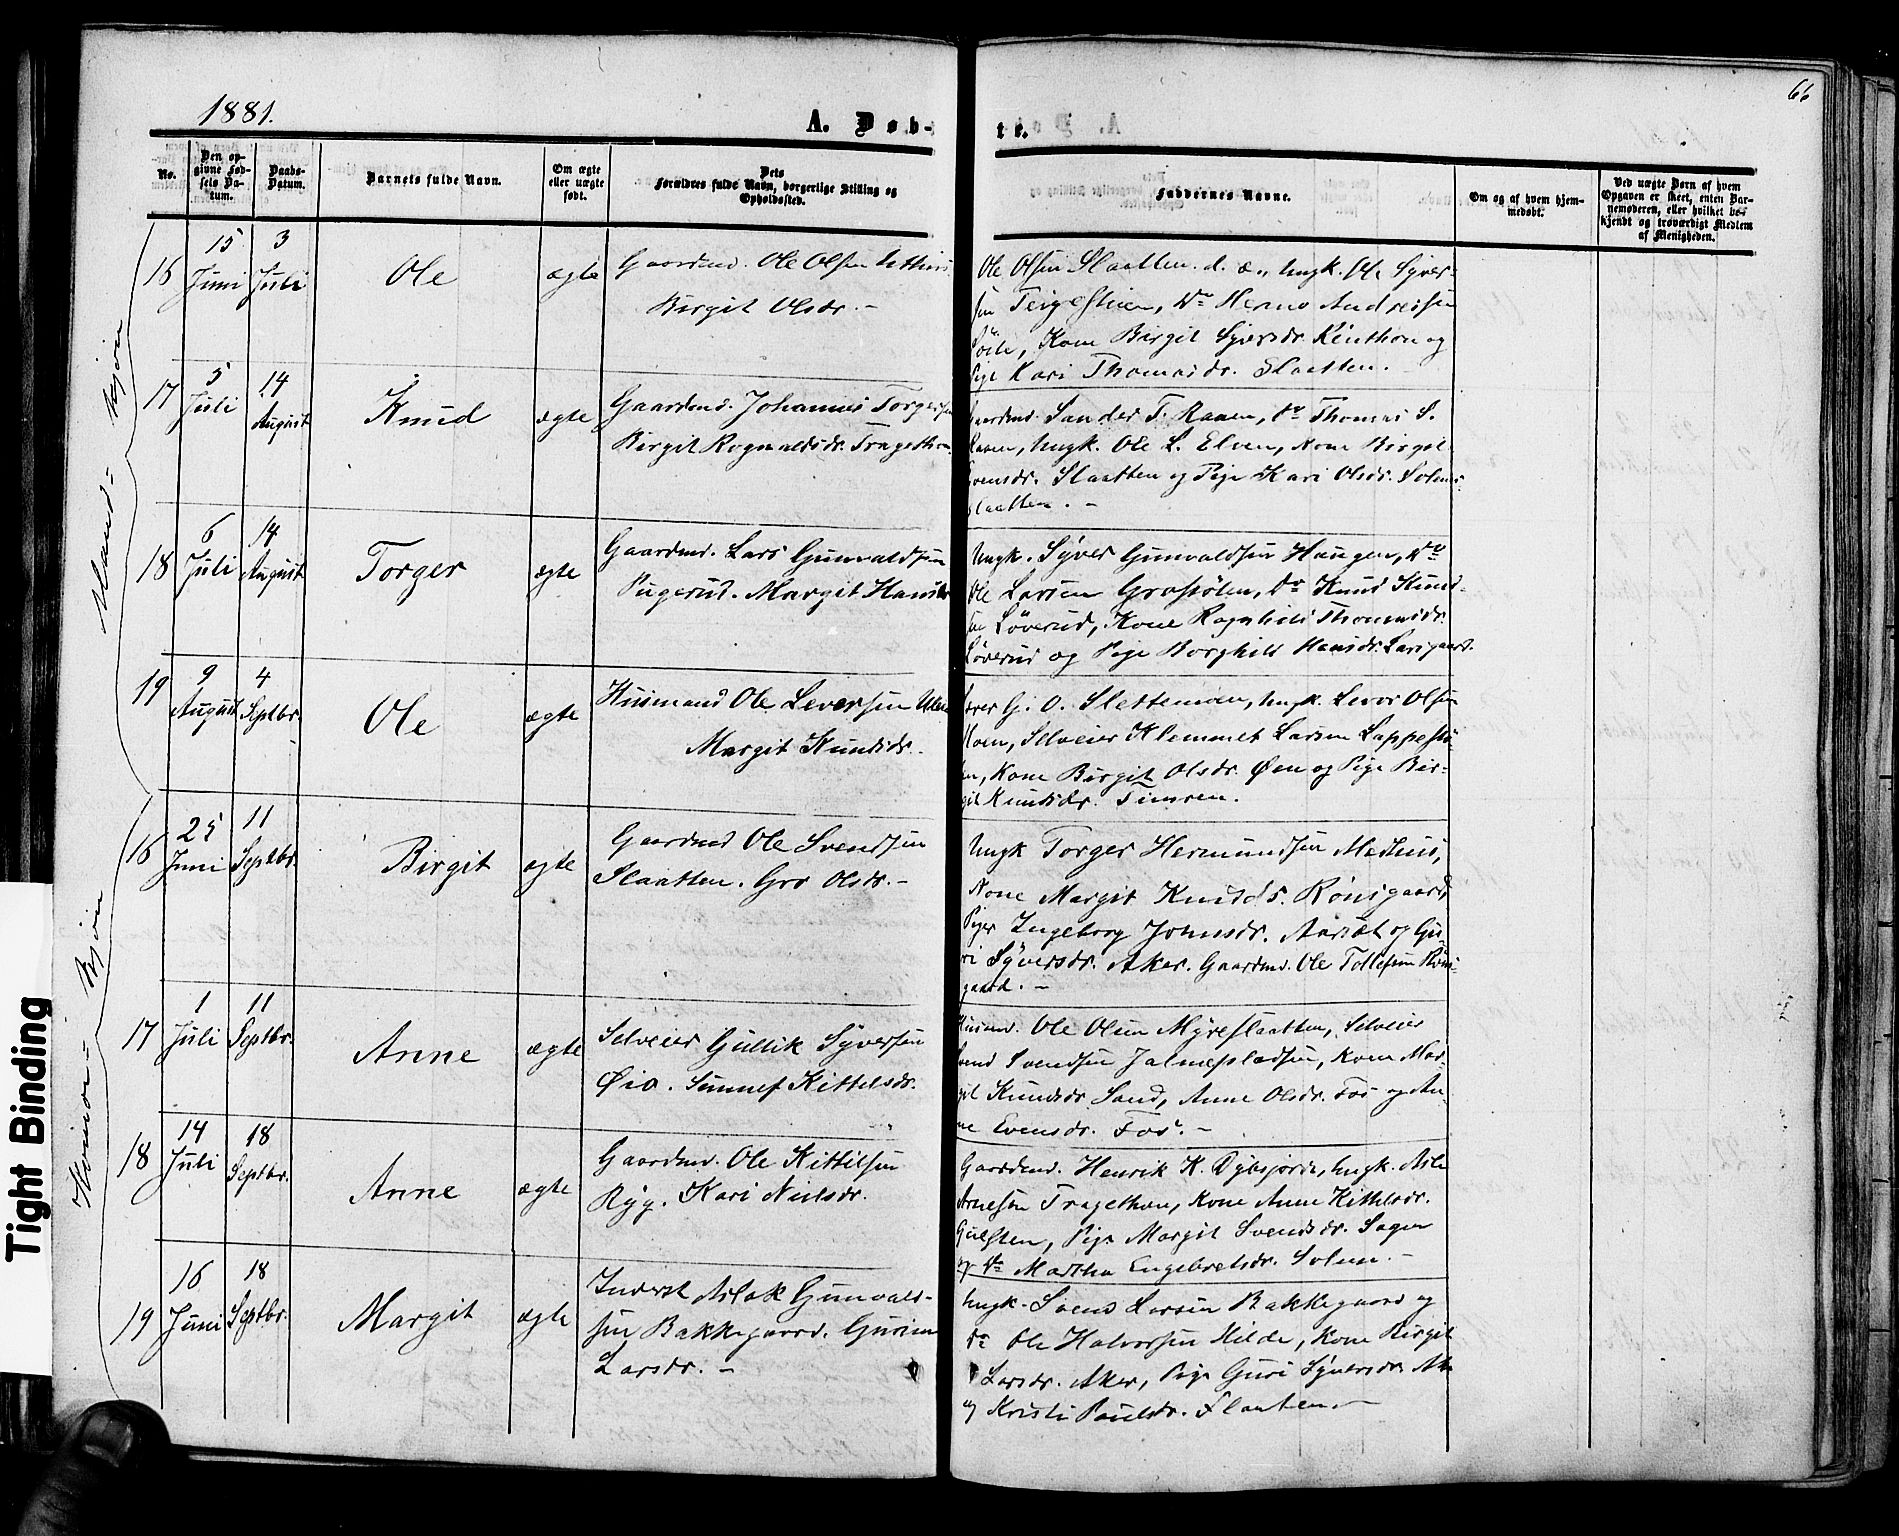 66
1881.
A. Døb-
te.
No.
Den op-
givne Fød-
sels Da-
tum.
Daabs-
Datum.
Barnets fulde Navn.
Om ægte
eller uægte
født.
Dets
Forældres fulde Navn, borgerlige Stilling og
Opholdssted.
Faddernes Navne.
Om og af hvem hjem-
medøbt.
Ved uægte Børn af hvem
Opgaven er skeet, enten Bar-
nemoderen, eller hvilket be-
kjendt og troværdigt Medlem
af Menigheden.
Mand-Kjøn
16
15 Juni
3 Juli
Ole
ægte
Gaardmd. Ole Olsen
Birgit Olsdr. -
Ole Olsen Slaatten d. æ., Ungk. Ole Syver-
sen Teigestuen, do Herm. Andreisen
Kone Birgit Syversdr. og
Pige Kari Thomasdr. Slaatten.
17
5 Juli
14 August
Knud
ægte
Gaardmd. Johannes Torgersen
Birgit Rognaldsdr. Tragethon.
Gaardmd. Sander T. Raaen, do Thomas S.
Raaen, Ungk. Ole L. Elven, Kone Birgit
Svensdr. Slaatten og Pige Kari Olsdr. Solem-
slaatten. -
18
6 Juli
14 August
Torger
ægte
Gaardmd. Lars Gunvaldsen
Pugerud. Margit Hansdr.
Ungk. Syver Gunvaldsen Haugen, do
Ole Larsen Grøtsølen, do Knud Knud-
sen Løverud, Kone Ragnhild Thomasdr.
Løverud og Pige Borghild Hansdr. Larsgaard.
19
9 August
4 Septbr.
Ole
ægte
Husmand Ole Leversen
Margit Knudsdr.
G. O. Slettemoen, Ungk. Levor Olsen
Moen, Selveier Klemmet Larsen
Kone Birgit Olsdr. Øen og Pige Bir-
git Knudsdr.
Kvinde-Kjøn
16
25 Juni
11 Septbr.
Birgit
ægte
Gaardmd Ole Svendsen
Slaatten. Gro Olsdr. -
Ungk Torger Hermundsen Medhus,
Kone Margit Knudsd. Rønsgaard,
Piger Ingeborg Johnsdr. Aasæt og Gu-
ri Syversdr. Aker. Gaardmd. Ole Tollefsen Røns-
gaard. -
17
1 Juli
11 Septbr.
Anne
ægte
Selveier Gullik Syversen
Øio. Sunnef Kittelsdr.
Husmd. Ole Olsen Myreslaatten, Selveier
Svend Svendsen Kone Mar-
git Knudsdr. Sand, Anne Olsdr. Fos og An-
ne Evensdr. Fos. -
18
14 Juli
18 Septbr.
Anne
ægte
Gaardmd. Ole Kittilsen
Ryg. Kari Nielsdr.
Gaardmd. Henrik K. Dybsjorde, Ungk. Asle
Arnesen Tragethon, Kone Anne Kittelsdr.
Gulsten, Pige Margit Svendsdr. Sagen
og do Martha Engebretsdr. Solem. -
19
16 Juni
18 Septbr.
Margit
ægte
Inderst Aslak Gunvald-
sen Bakkegaard. Guri
Larsdr. -
Ungk. Svend Larsen Bakkegaard og
do Ole Halvorsen Milde, Kone Birgit
Larsdr. Aker, Pige Guri Syversdr.
og Kristi Paulsdr. Slaatten. -
Tight Binding